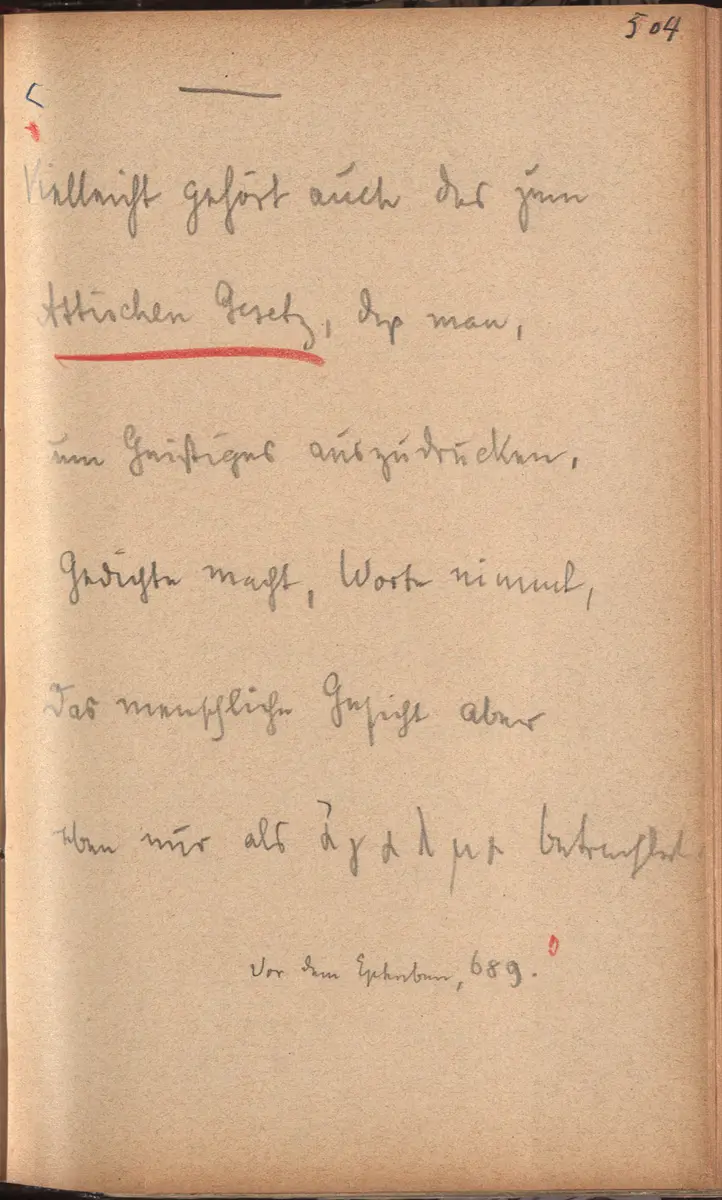 504
Vielleicht gehört auch das zum
Attischen Gesetz, daß man,
um Geistiges auszudrücken,
Gedichte macht, Worte nimmt,
Das menschliche Gesicht aber
eben nur als ἄγαλμα betrachtet.
Vor dem Epheben, 689.